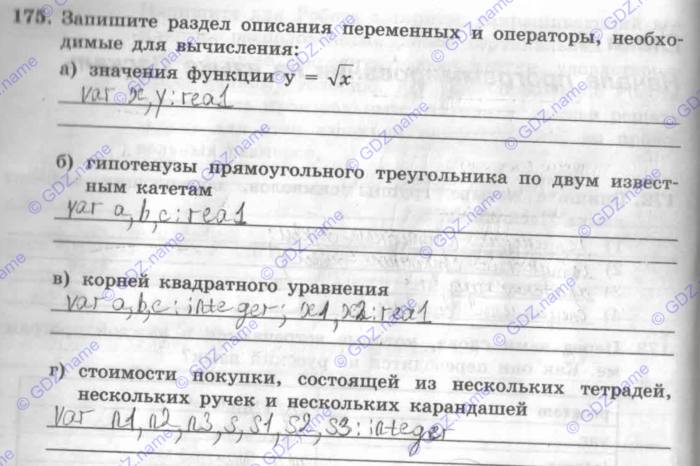 175. Запишите раздел описания переменных и операторы, необхо-
димые для вычисления:
а) значения функции y = √x
var x,y:real
б) гипотенузы прямоугольного треугольника по двум извест-
ным катетам
var a,b,c:real
в) корней квадратного уравнения
var a,b,c:integer; x1,x2:real
г) стоимости покупки, состоящей из нескольких тетрадей,
нескольких ручек и нескольких карандашей
var n1,n2,n3,s,s1,s2,s3:integer
© GDZ.name